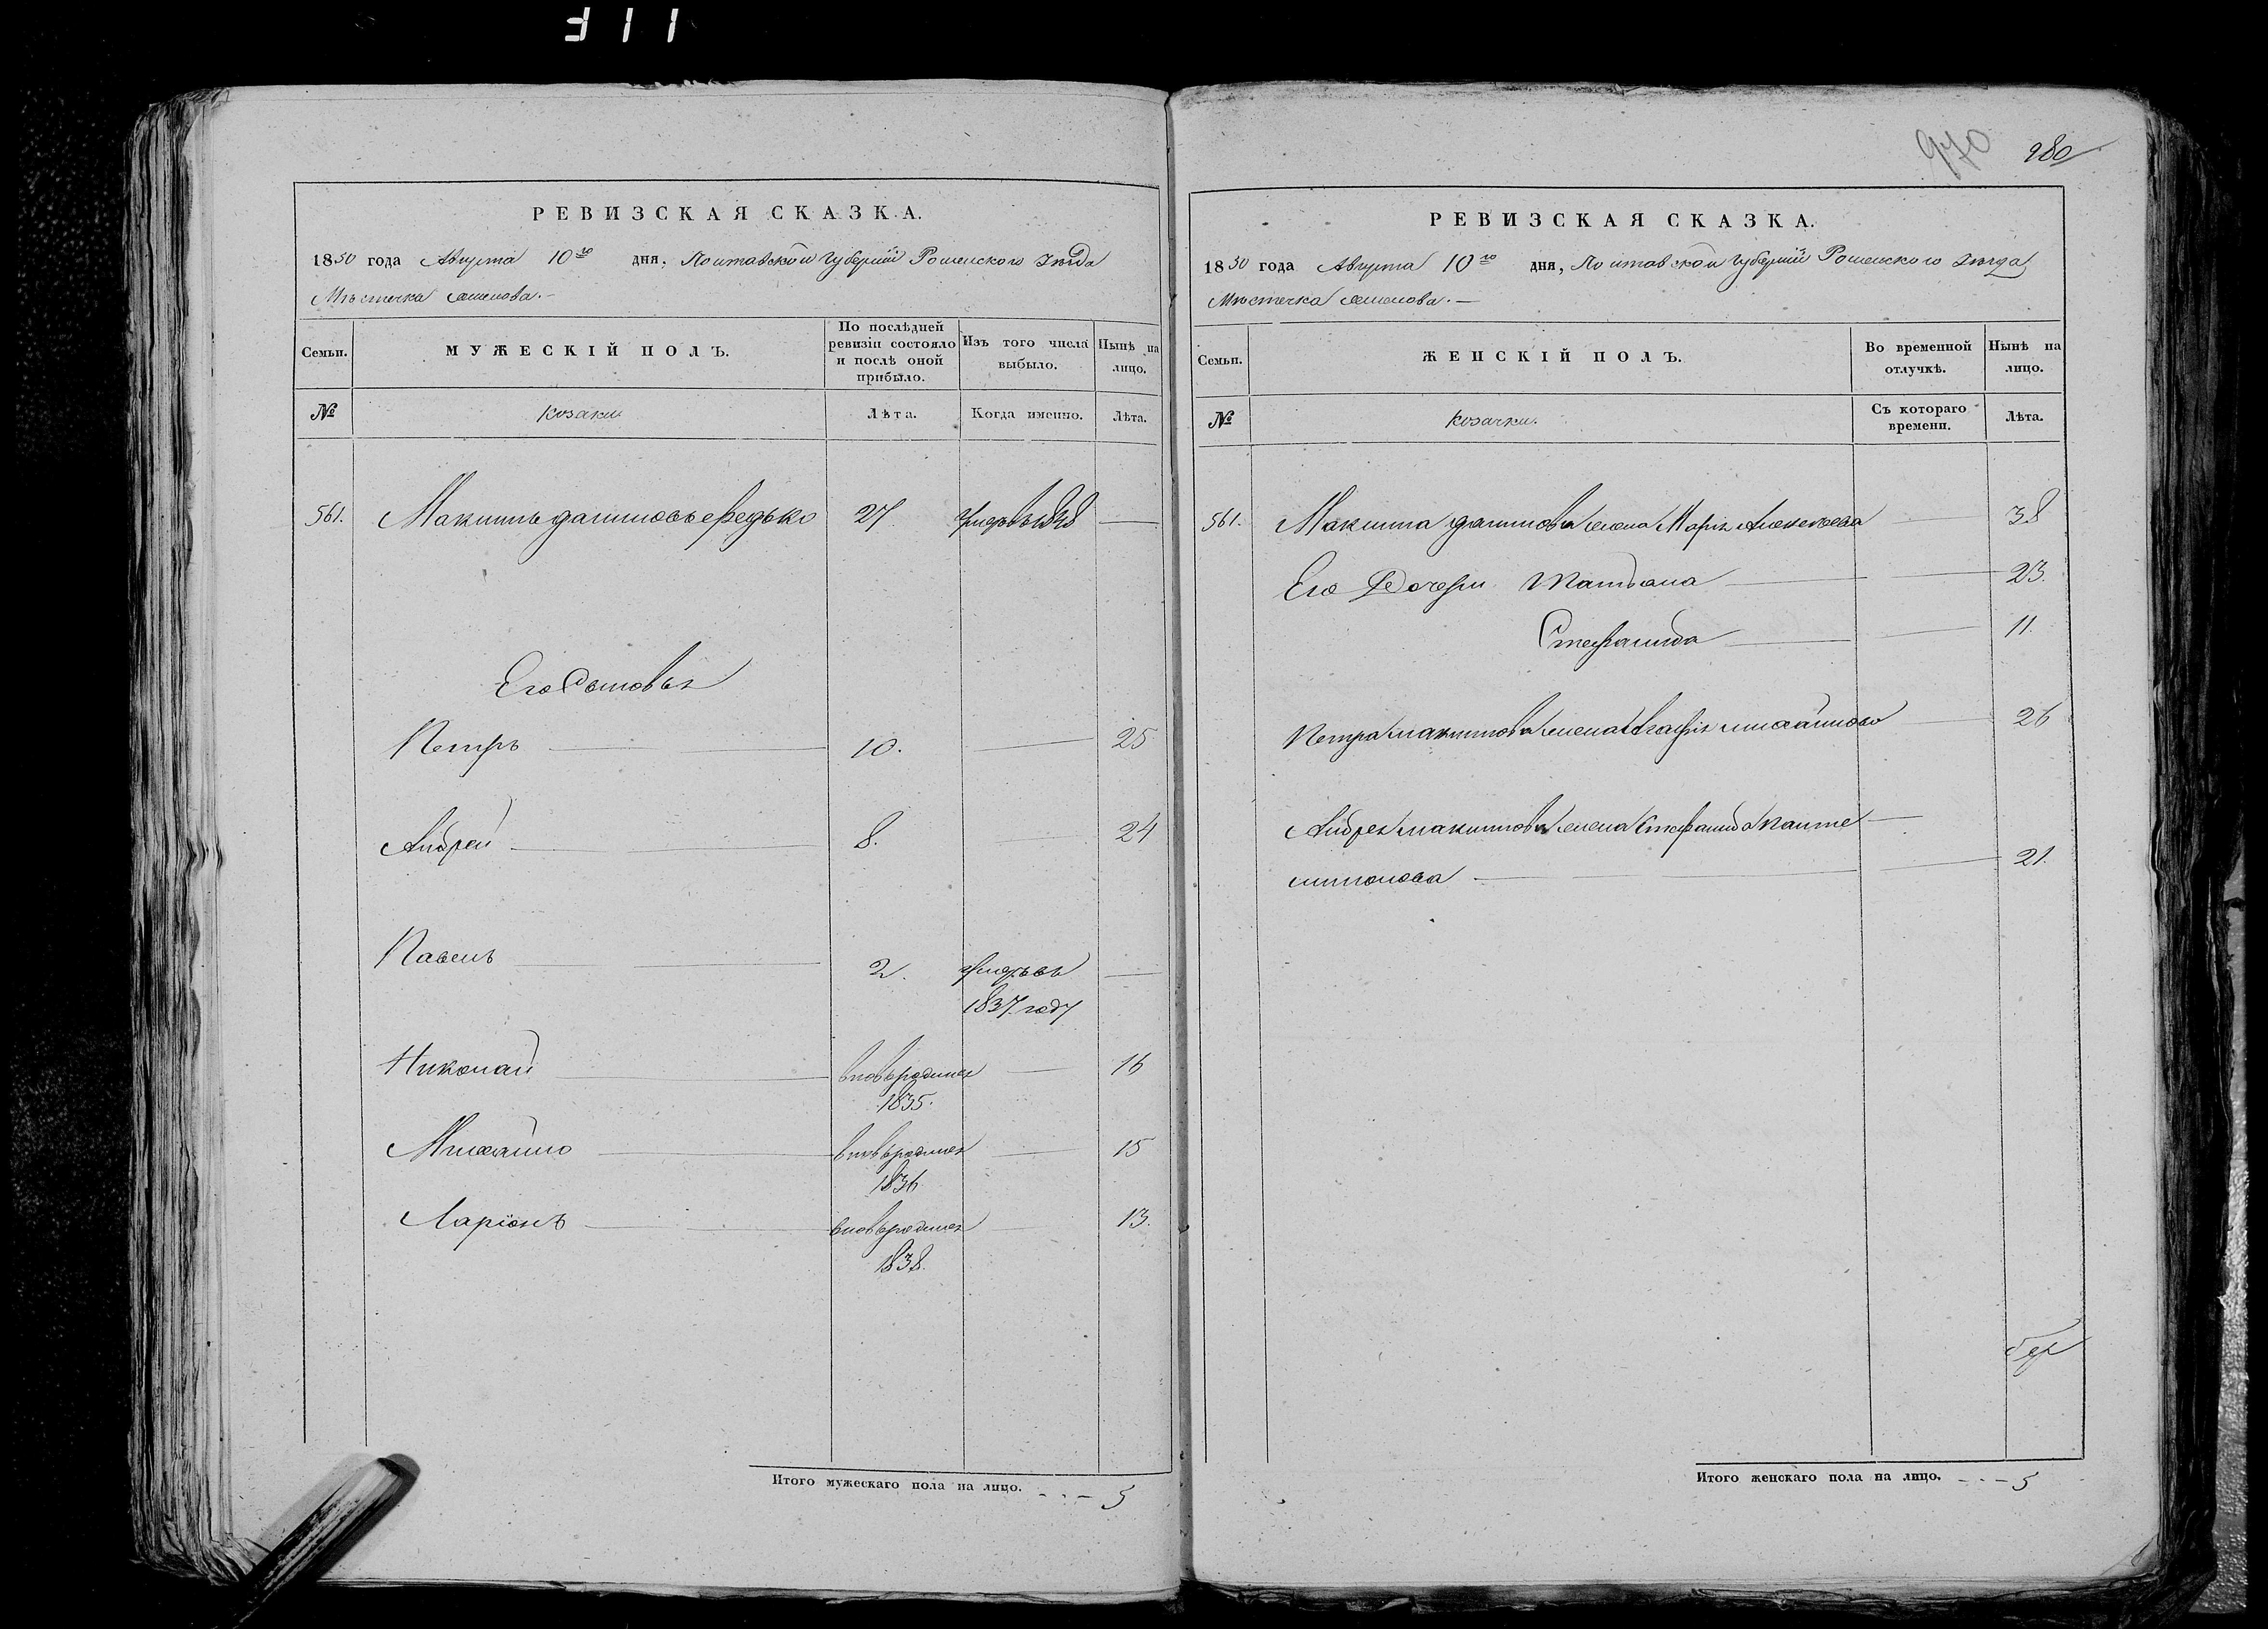 970
980
РЕВИЗСКАЯ СКАЗКА.
1850 года Августа 10го дня, Полтавской Губерніи Роменского Уѣзда
Мѣстечка Смелова.
Семьи.
МУЖЕСКІЙ ПОЛЪ.
По послѣдней ревизіи состояло и послѣ оной прибыло.
Изъ того числа выбыло.
Нынѣ на лицо.
№
козаки
Лѣта.
Когда именно.
Лѣта.
561. Максимъ даниловъ редько 27 умеръ в 1848 —
Его Сыновья
Петръ 10. 25
Андрей 8. 24
Павелъ 2. умеръ въ —
1837 году
Николай вновьродился 16
1835.
Михайло вновьродился 15
1836
Ларіонъ вновьродился 13.
1838.
Итого мужескаго пола на лицо. 5
РЕВИЗСКАЯ СКАЗКА.
1850 года Августа 10го дня, Полтавской Губерніи Роменского Уѣзда
Мѣстечка Смелова.
Семьи.
ЖЕНСКІЙ ПОЛЪ.
Во временной отлучкѣ.
Нынѣ на лицо.
№
козачки.
Съ котораго времени.
Лѣта.
561. Максима данилова жена Марія Алексеева 38
Его Дочери Татьяна 23.
Стефанида 11.
Петра максимова жена Агафія михайлова 26
Андрея максимова жена Стефанида Панте
лимонова 21.
Итого женскаго пола на лицо. 5